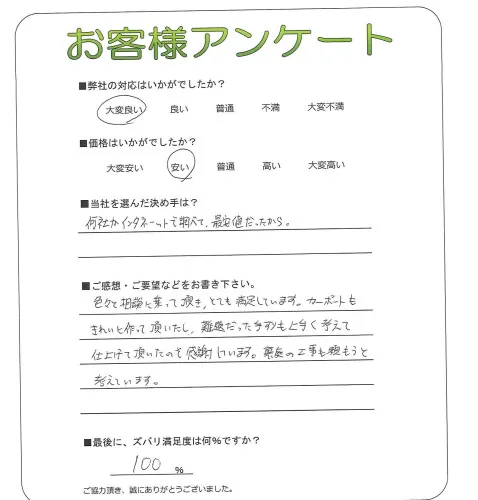 お客様アンケート
■弊社の対応はいかがでしたか?
大変良い 良い 普通 不満 大変不満
■価格はいかがでしたか?
大変安い 安い 普通 高い 大変高い
■当社を選んだ決め手は?
何社かインターネットで調べて、最安値だったから。
■ご感想・ご要望などをお書き下さい。
色々と相談に乗って頂き、とても満足しています。カーポートも
きれいに作って頂いたし、難題だった手すりも上手く考えて
仕上げて頂いたのも感謝しています。裏庭の工事も頼もうと
考えています。
■最後に、ズバリ満足度は何%ですか?
100 %
ご協力頂き、誠にありがとうございました。